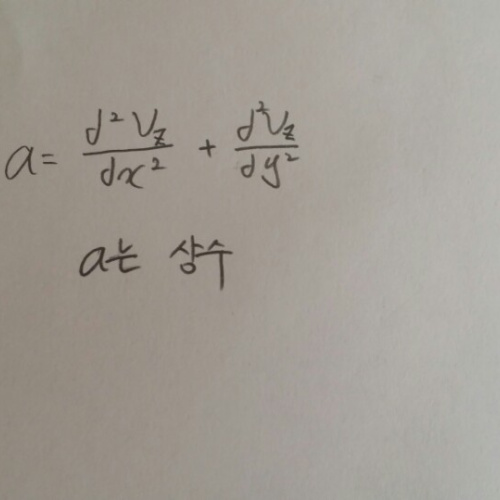 a = d²V_z/dx² + d²V_z/dy²
a는 상수